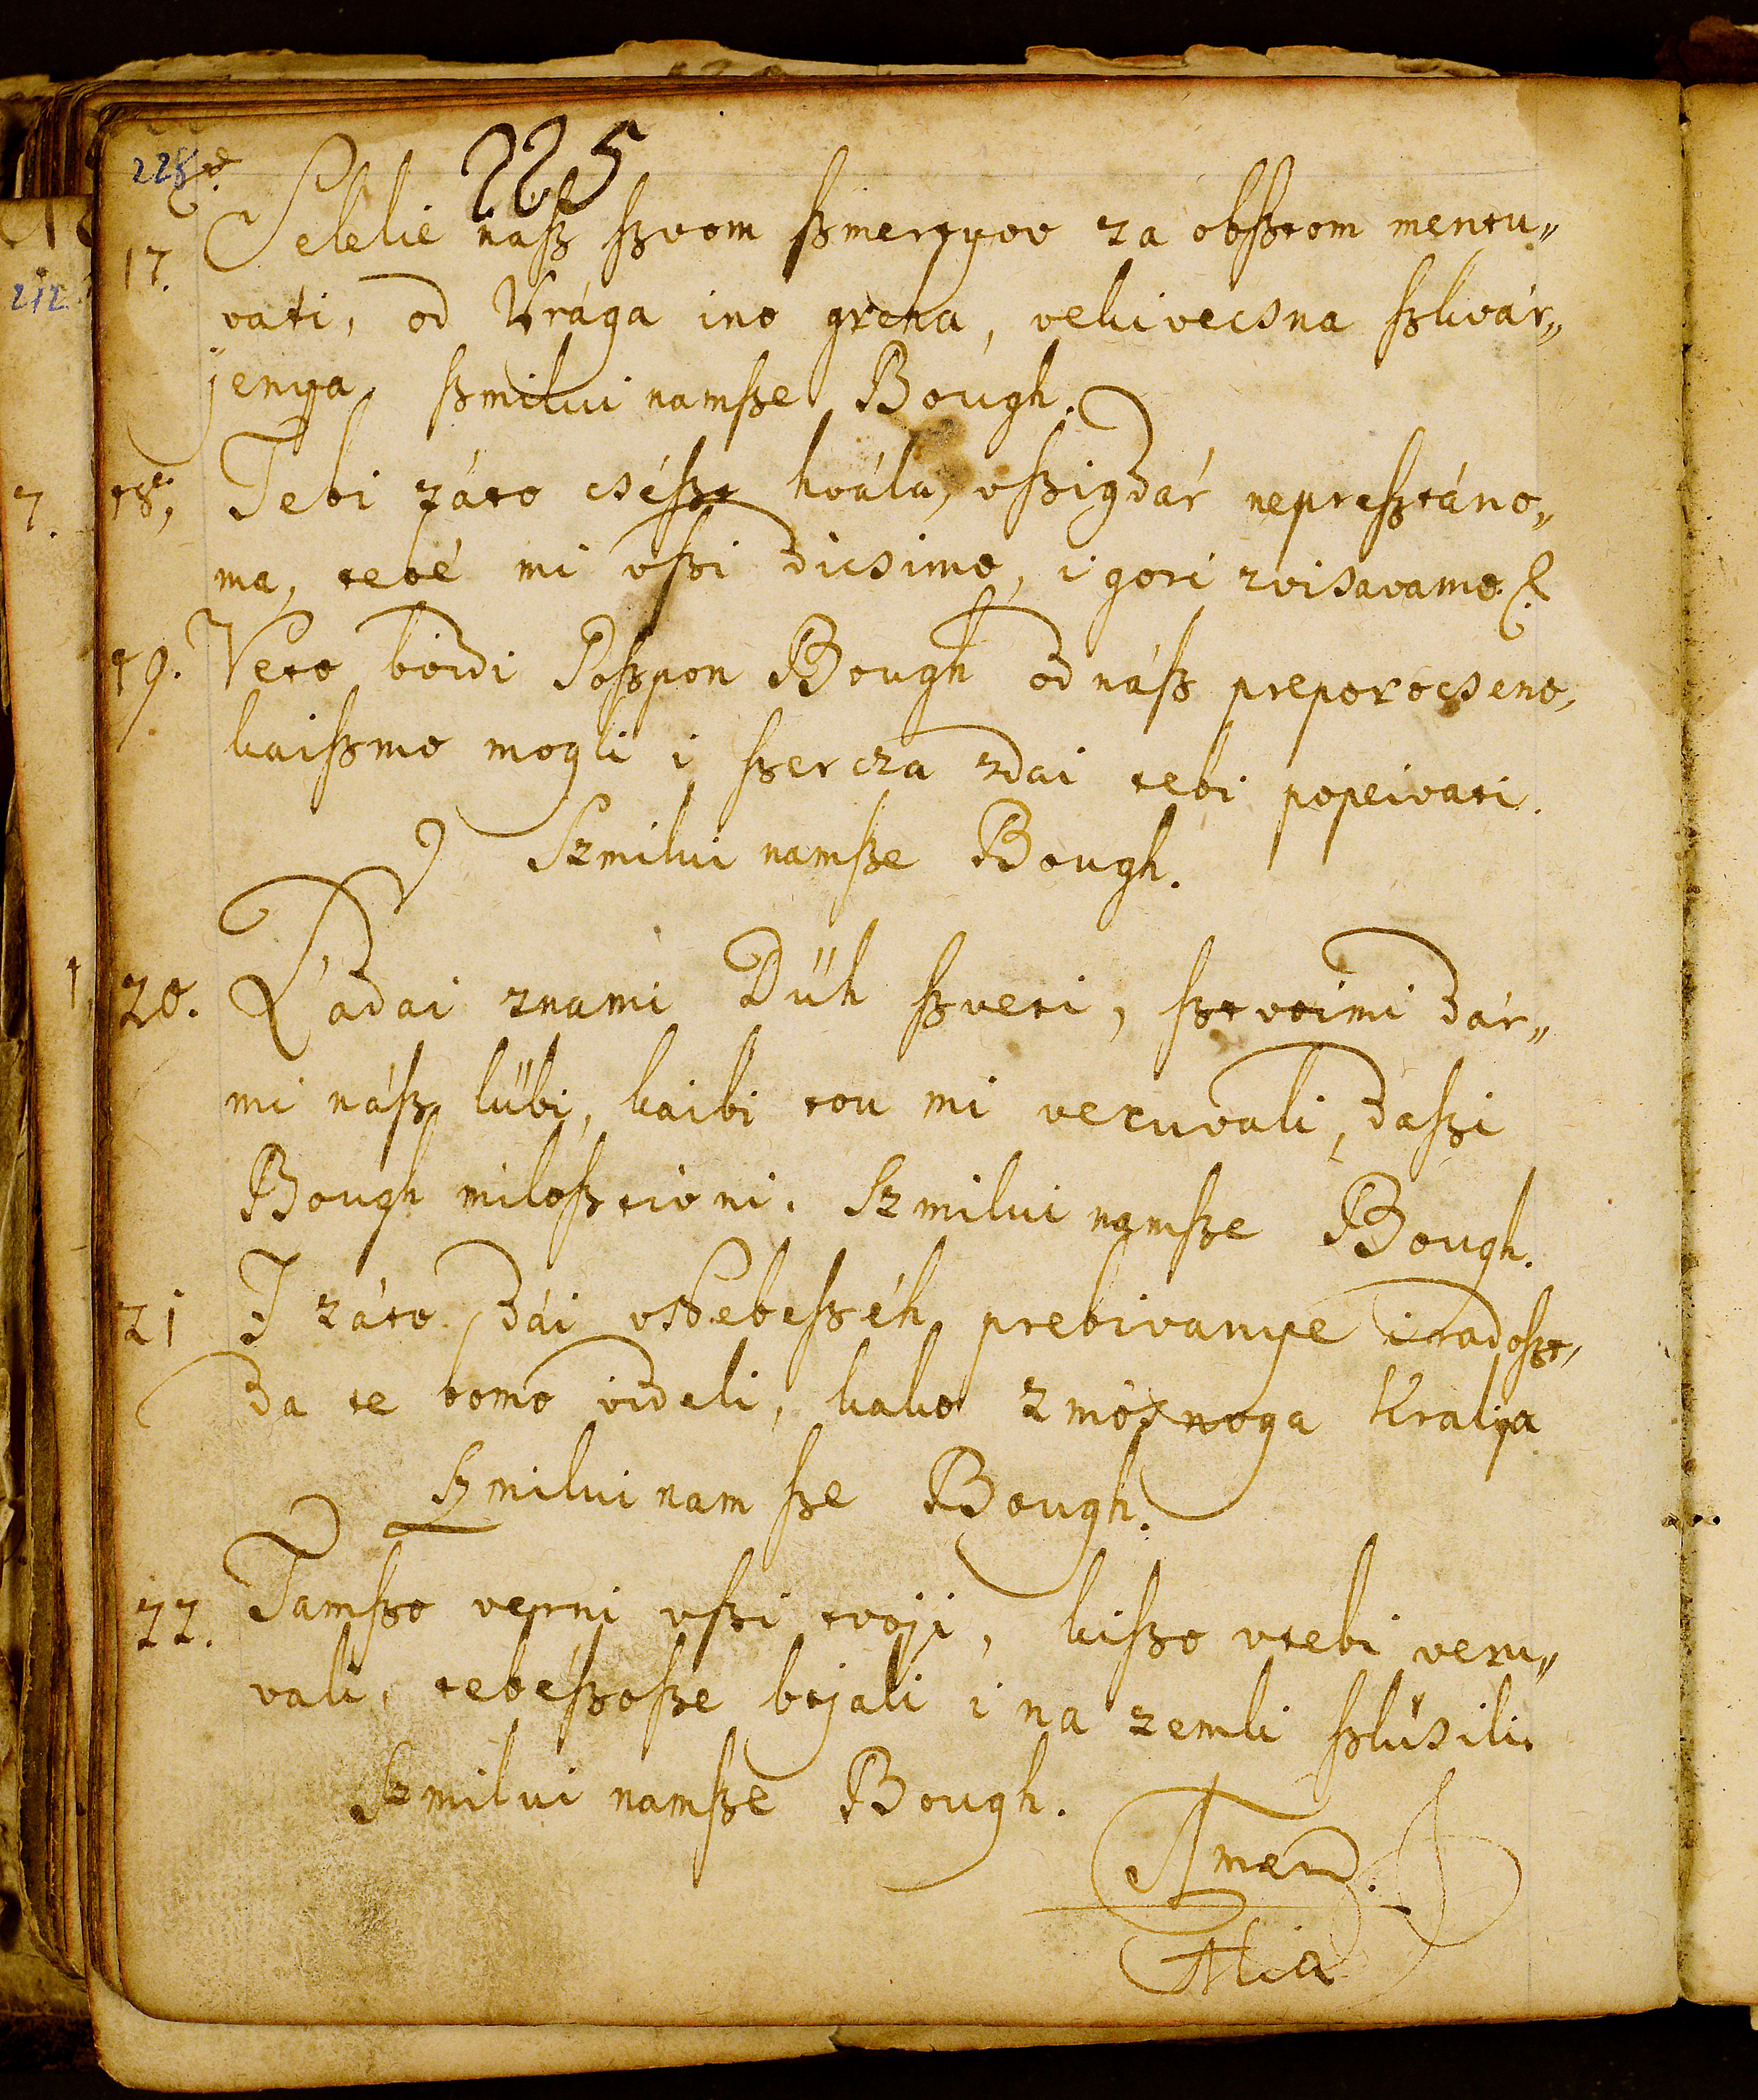 225
17. Selelie naſz ſzvom ſzmertyov za obſztom mentu„
vati, od Vrága ino greha, vekivecsna ſzkvár„
jenya, ſzmilui namſze Bough.
18. Tebi záto cséſzt hválu, vſzigdár nepreſztáno„
ma, tebé mi vſzi dicsimo, i gori zvisavamo
19. Veto bòidi Goſzpon Bough od náſz preporocseno,
kaiſzmo mogli i ſzercza zdai tebi popeivati.
Szmilui namſze Bough.
20. Ládai znami Düh ſzveti, ſztvoimi dár„
mi náſz lübi, kaibi tou mi veruvali, daſzi
Bough miloſztivni. Szmilui namſze Bough.
21 I záto dái vNebeſzéh prebivanye i radoſzt,
da te bomo videli, kako zmóznoga Kralya
Szmilui nam ſze Bough.
22. Tamſzo verni vſzi tvoji, kiſzo vtebi veru„
vali, tebéſzoſze bojali i na zemli ſzlúsili.
Szmilui namſze Bough.
Amen.
Alia